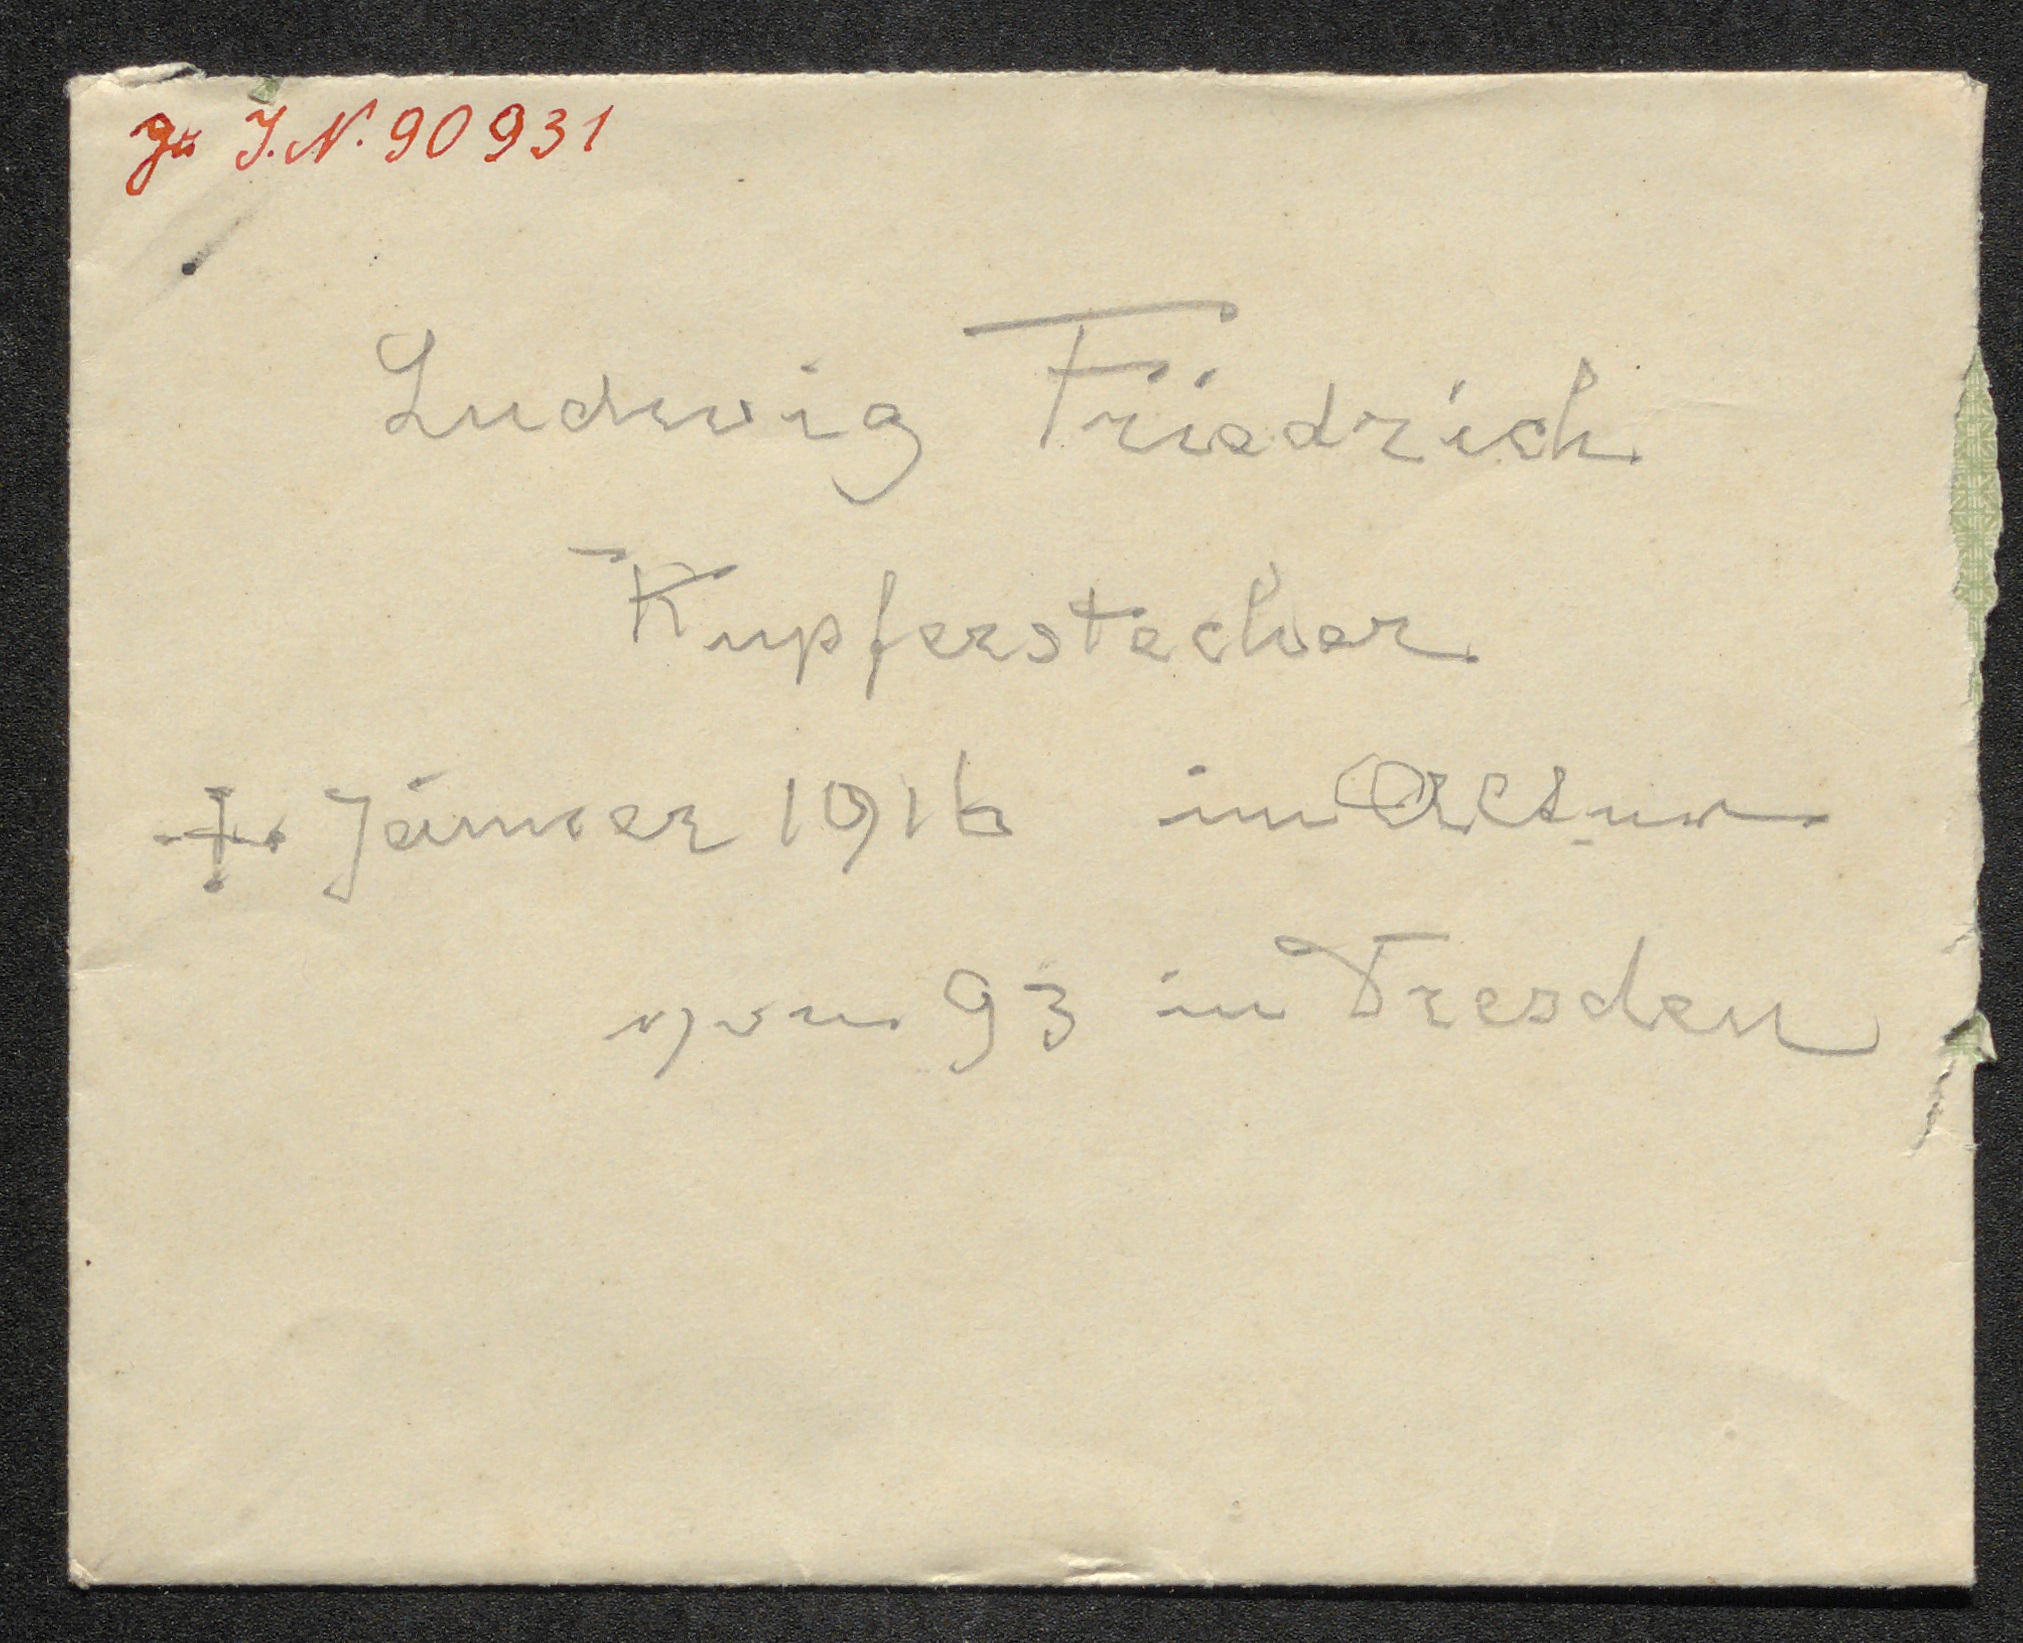 zu J.N. 90931
Ludwig Friedrich
Kupferstecher
† Jänner 1916 im Alter
von 93 in Dresden